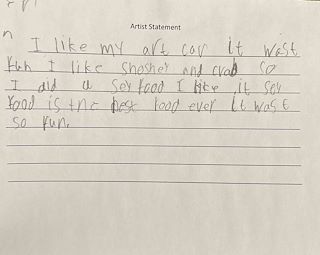 Artist Statement
n I like my art car it wast
fun I like shosher and crab so
I did a sey food I like it sey
food is the best food ever it wast
so fun.